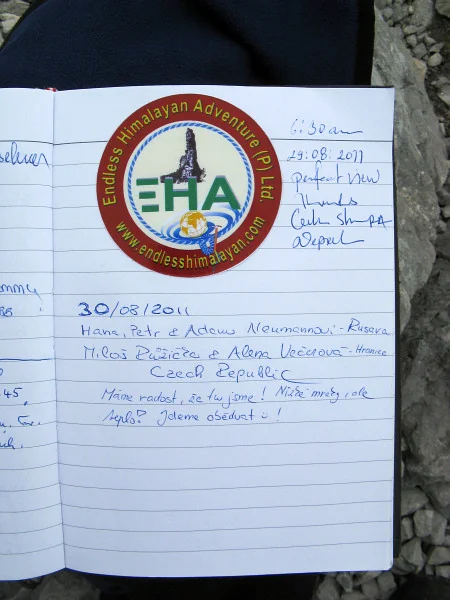 Endless Himalayan Adventure (P) Ltd.
EHA
www.endlesshimalayan.com
6:30 am
29:08:2011
perfect view
Thanks
Nepal
30/08/2011
Hana, Petr & Adam Neumannovi - Rusava
Miloš Růžička & Alena Večeřová - Hranice
Czech Republic
Máme radost, že tu jsme! Nízké mraky, ale
teplo? Jdeme obědvat !
45,